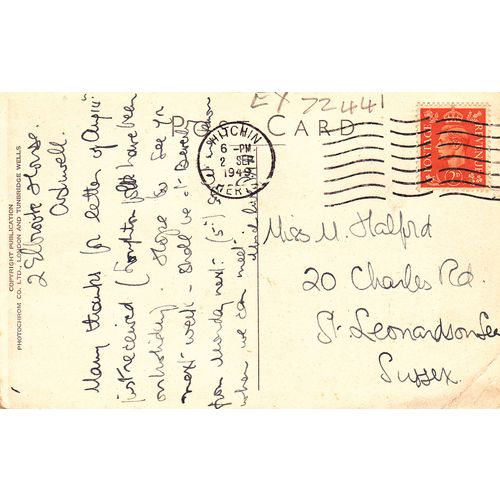 EX 72441
POST CARD
HITCHIN
6 - PM
2 SEP
1949
HERTS
POSTAGE REVENUE
COPYRIGHT PUBLICATION
PHOTOCHROM CO. LTD., LONDON AND TUNBRIDGE WELLS
2 Elbrook House.
Ashwell.
Many thanks for letter of Aug 14
just received (Forgotten folk have been
on holiday). Hope to see you
next week - shall be at
from Monday next (5th)
when we can meet.
Miss M. Halford
20 Charles Rd.
St. Leonards on Sea
Sussex.